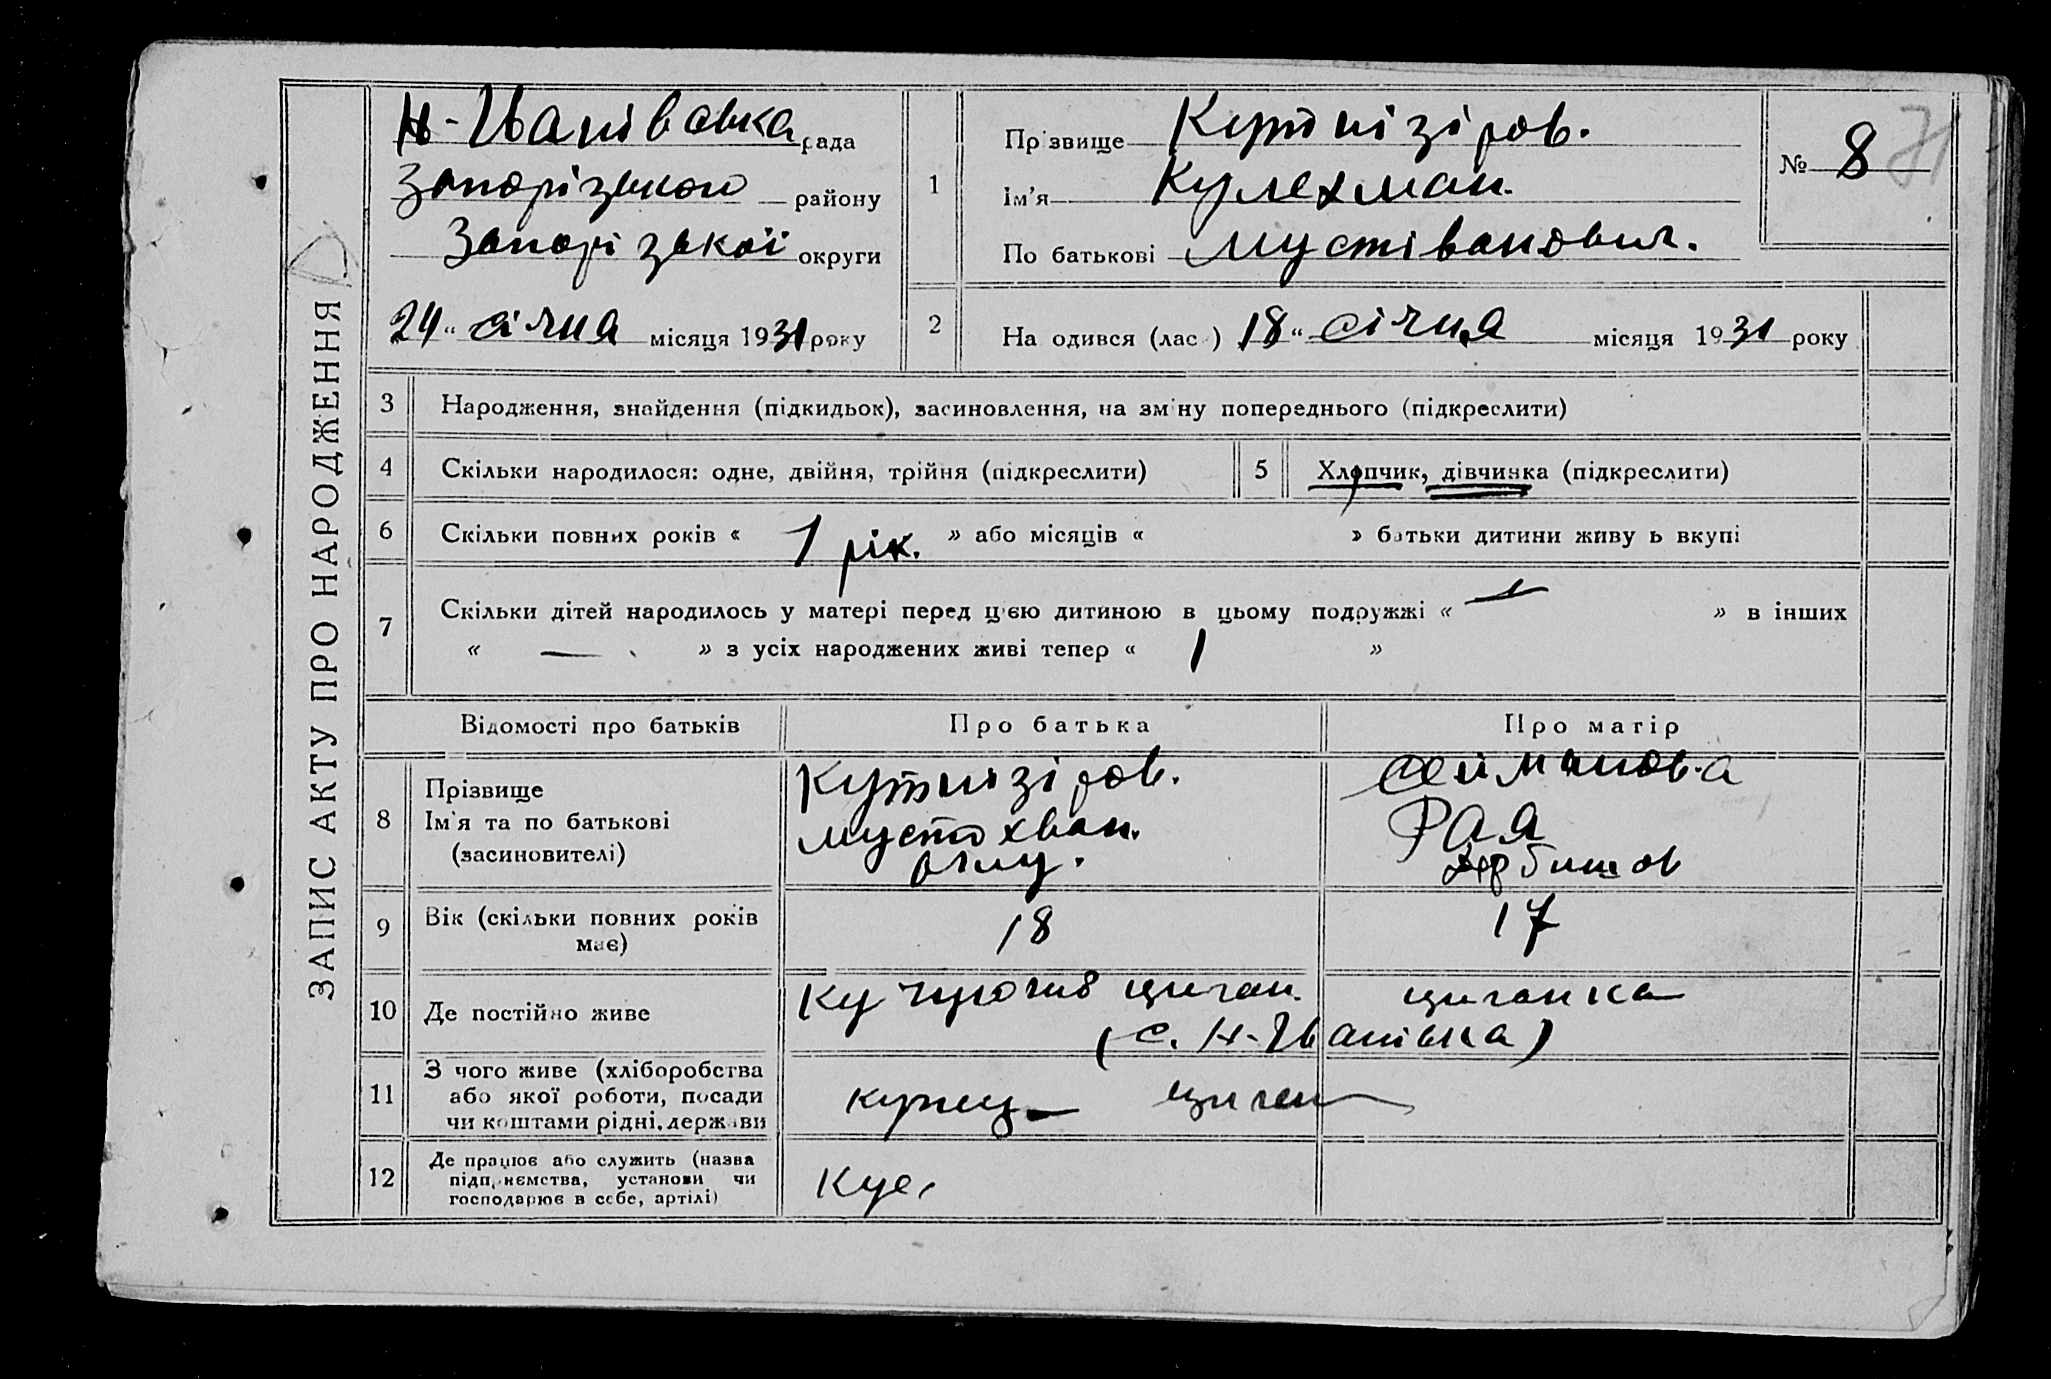 ЗАПИС АКТУ ПРО НАРОДЖЕННЯ
Н-Іванівська рада
Запорізького району
Запорізької округи
24 " січня місяця 1931 року
1
Прізвище Кутнізіров.
Ім'я Кулехман.
По батькові Мустіванович.
№ 8
2
На одився (лас ) 18 " січня місяця 1931 року
3 Народження, знайдення (підкидьок), засиновлення, на зміну попереднього (підкреслити)
4 Скільки народилося: одне, двійня, трійня (підкреслити)
5 Хлопчик, дівчинка (підкреслити)
6 Скільки повних років « 1 рік. » або місяців « » батьки дитини живу ь вкупі
7 Скільки дітей народилось у матері перед цією дитиною в цьому подружжі « 1 » в інших
« — » з усіх народжених живі тепер « 1 »
Відомості про батьків Про батька Про матір
8 Прізвище
Ім'я та по батькові
(засиновителі)
Кутнізіров.
Мустохван.
оглу.
Сейманова
Рая
9 Вік (скільки повних років має) 18 17
10 Де постійно живе циган. циганка
(с. Н-Іванівка)
11 З чого живе (хліборобства
або якої роботи, посади
чи коштами рідні, держави
циган
12 Де працює або служить (назва
підприємства, установи чи
господарює в себе, артілі)